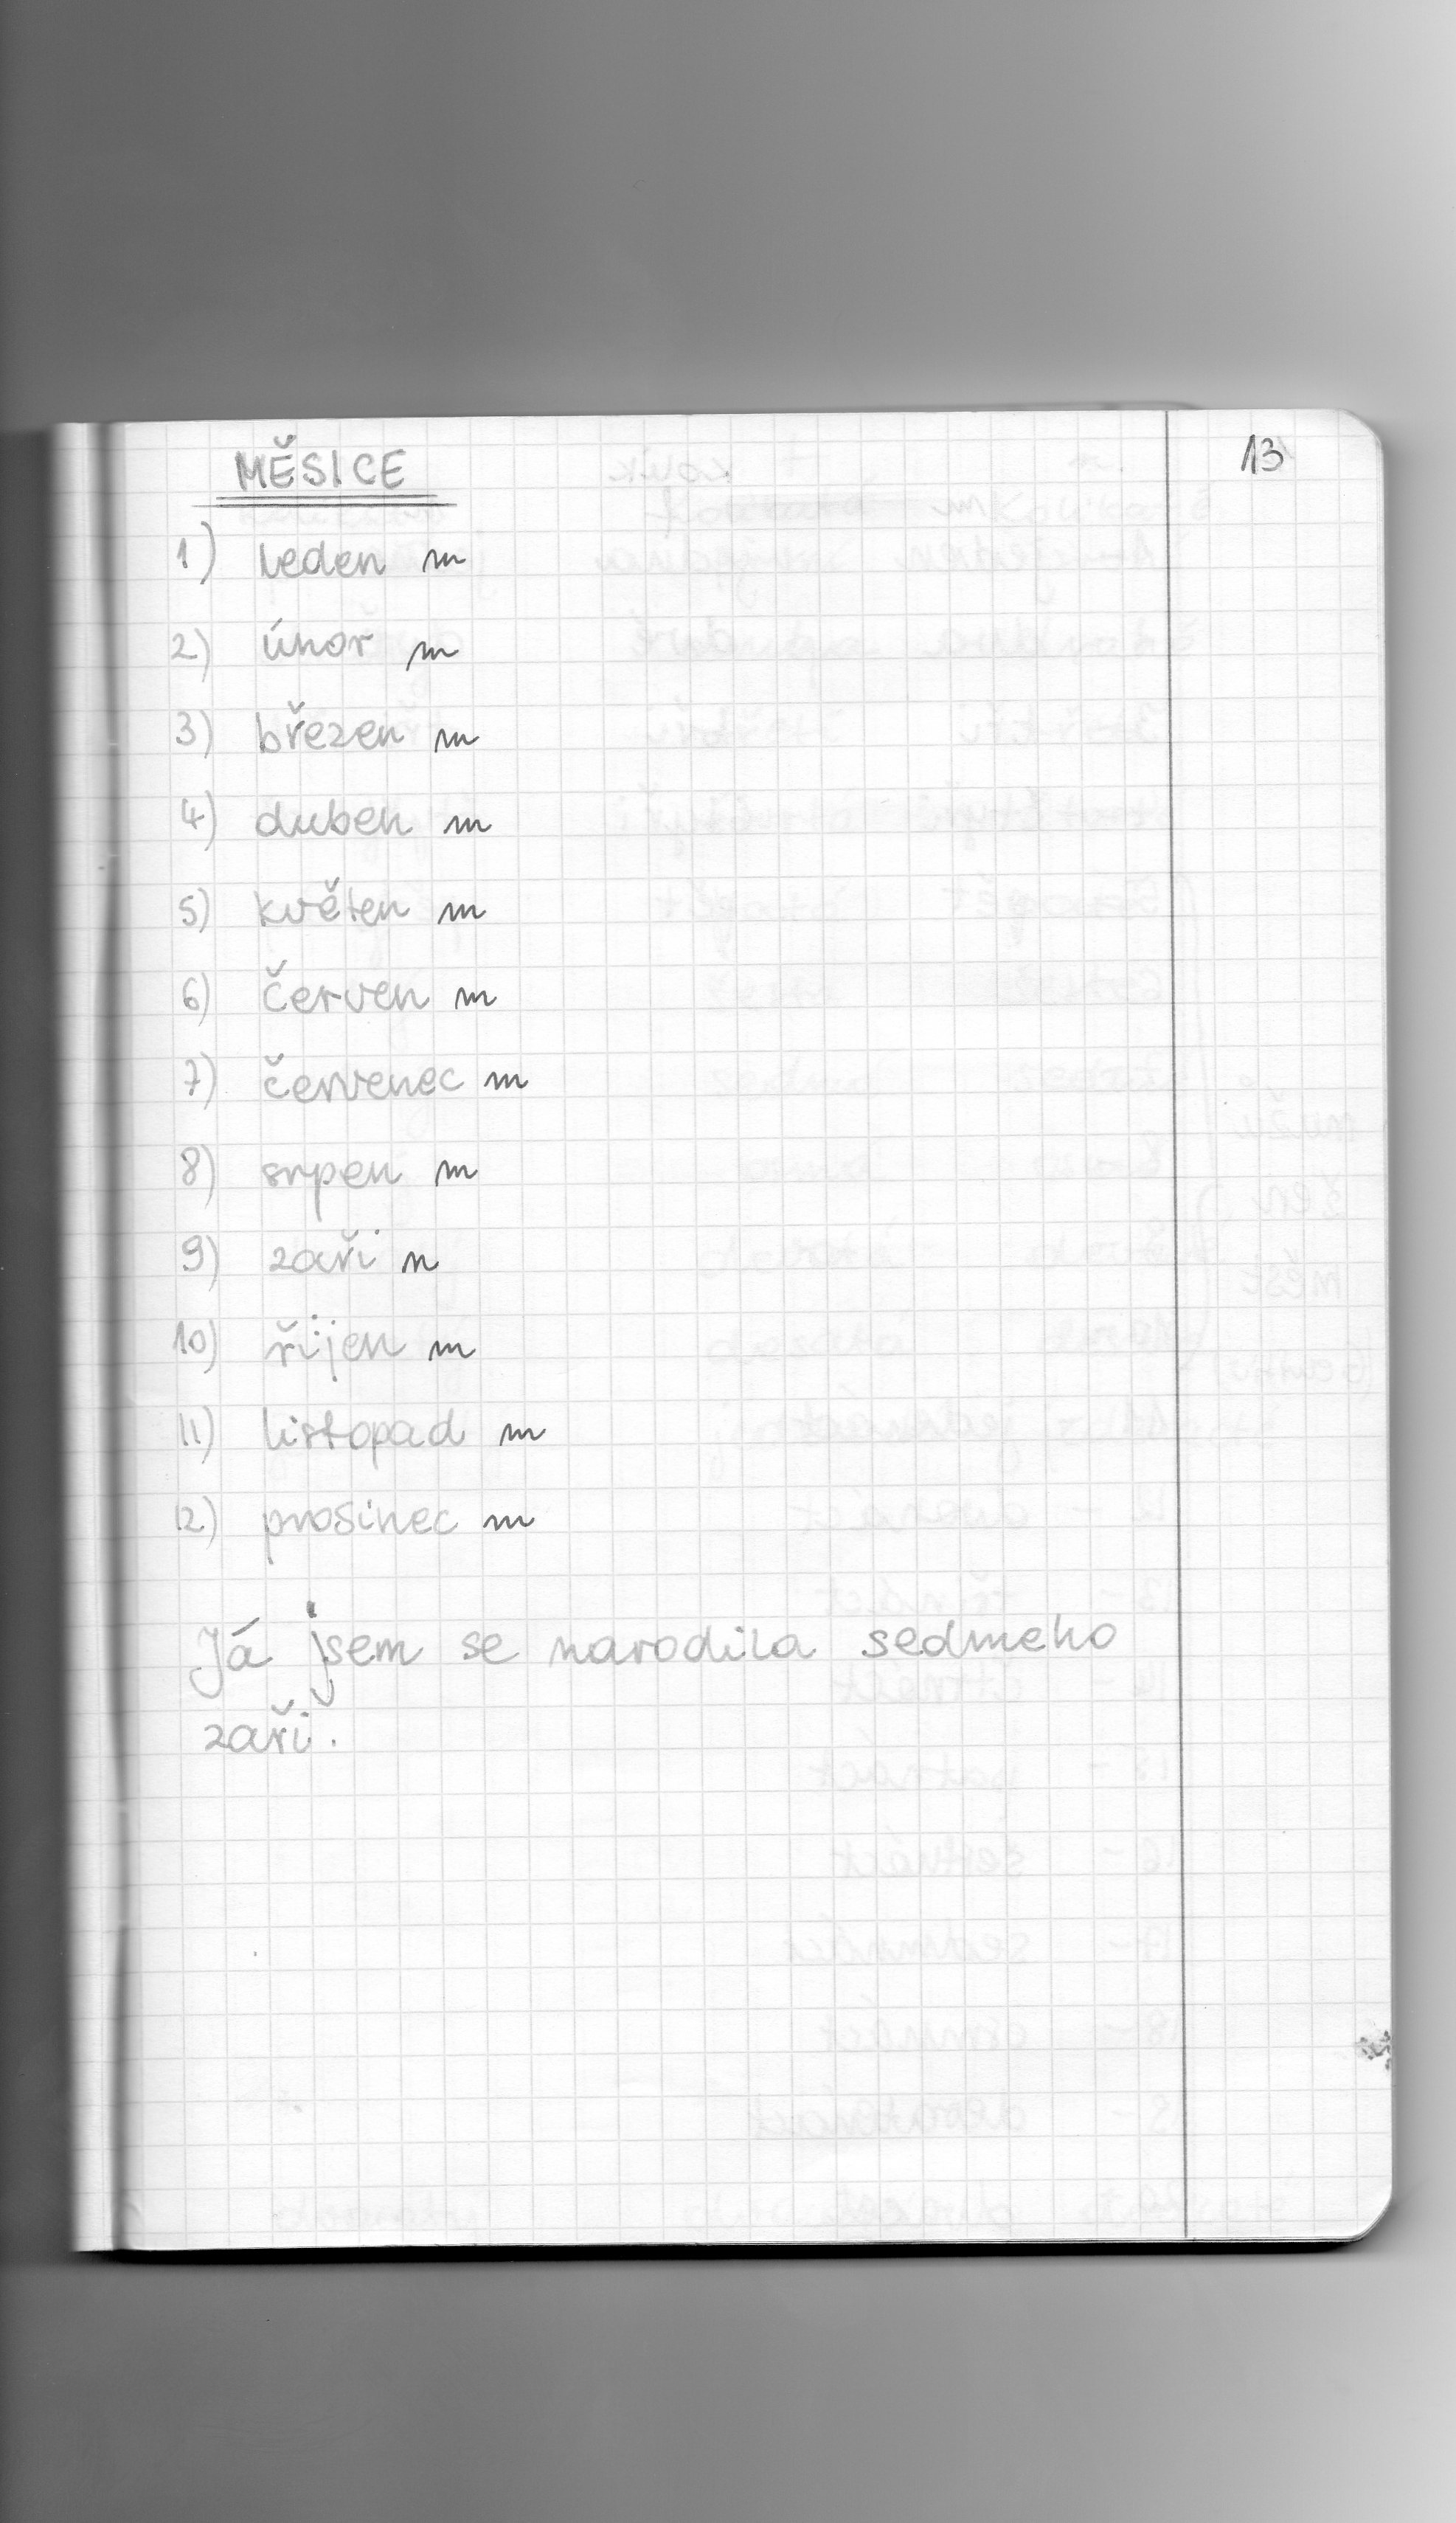 MĚSICE
13
1) leden m
2) únor m
3) březen m
4) duben m
5) květen m
6) červen m
7) červenec m
8) srpen m
9) zaři n
10) řijen m
11) listopad m
12) prosinec m
Já jsem se narodila sedmeho
zaři.